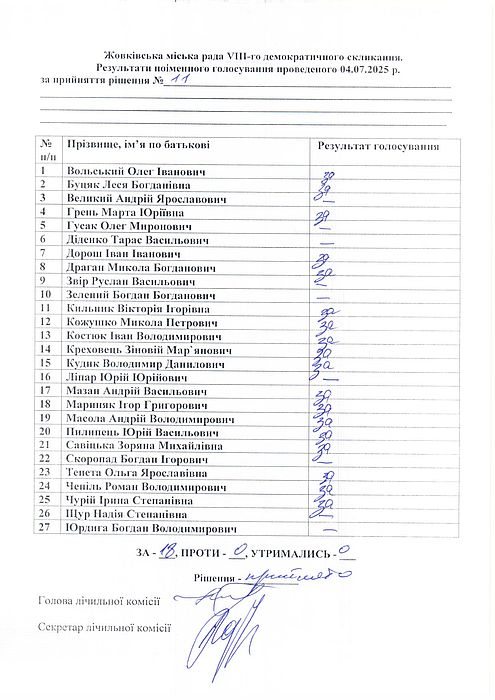 Жовківська міська рада VIII-го демократичного скликання.
Результати поіменного голосування проведеного 04.07.2025 р.
за прийняття рішення № 11
№ п/п Прізвище, ім’я по батькові Результат голосування
1 Вольський Олег Іванович за
2 Буцяк Леся Богданівна за
3 Великий Андрій Ярославович —
4 Грень Марта Юріївна за
5 Гусак Олег Миронович —
6 Діденко Тарас Васильович —
7 Дорош Іван Іванович за
8 Драган Микола Богданович за
9 Звір Руслан Васильович —
10 Зелений Богдан Богданович —
11 Кильник Вікторія Ігорівна за
12 Кожушко Микола Петрович за
13 Костюк Іван Володимирович за
14 Креховець Зіновій Мар`янович за
15 Кудик Володимир Данилович за
16 Ліпар Юрій Юрійович —
17 Мазан Андрій Васильович за
18 Мариняк Ігор Григорович за
19 Масола Андрій Володимирович за
20 Пилипець Юрій Васильович за
21 Савіцька Зоряна Михайлівна за
22 Скоропад Богдан Ігорович —
23 Тепета Ольга Ярославівна за
24 Чепіль Роман Володимирович за
25 Чурій Ірина Степанівна за
26 Щур Надія Степанівна —
27 Юрдига Богдан Володимирович —
ЗА - 18, ПРОТИ - 0, УТРИМАЛИСЬ - 0
Рішення - прийнято
Голова лічильної комісії
Секретар лічильної комісії